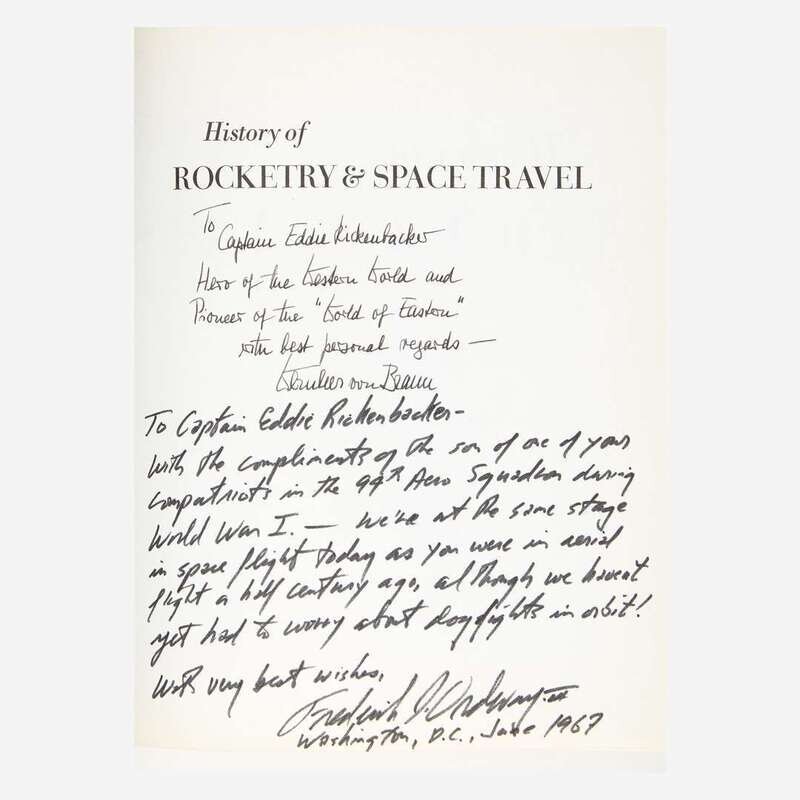 History of
ROCKETRY & SPACE TRAVEL
To
Captain Eddie Rickenbacker
Hero of the Western World and
Pioneer of the "World of Eastern"
with best personal regards —
Wernher von Braun
To Captain Eddie Rickenbacker-
with the compliments of the son of one of your
compatriots in the 94th Aero Squadron during
World War I. — We're at the same stage
in space flight today as you were in aerial
flight a half century ago, although we haven't
yet had to worry about dogfights in orbit!
With very best wishes,
Frederick I. Ordway III
Washington, D.C., June 1967